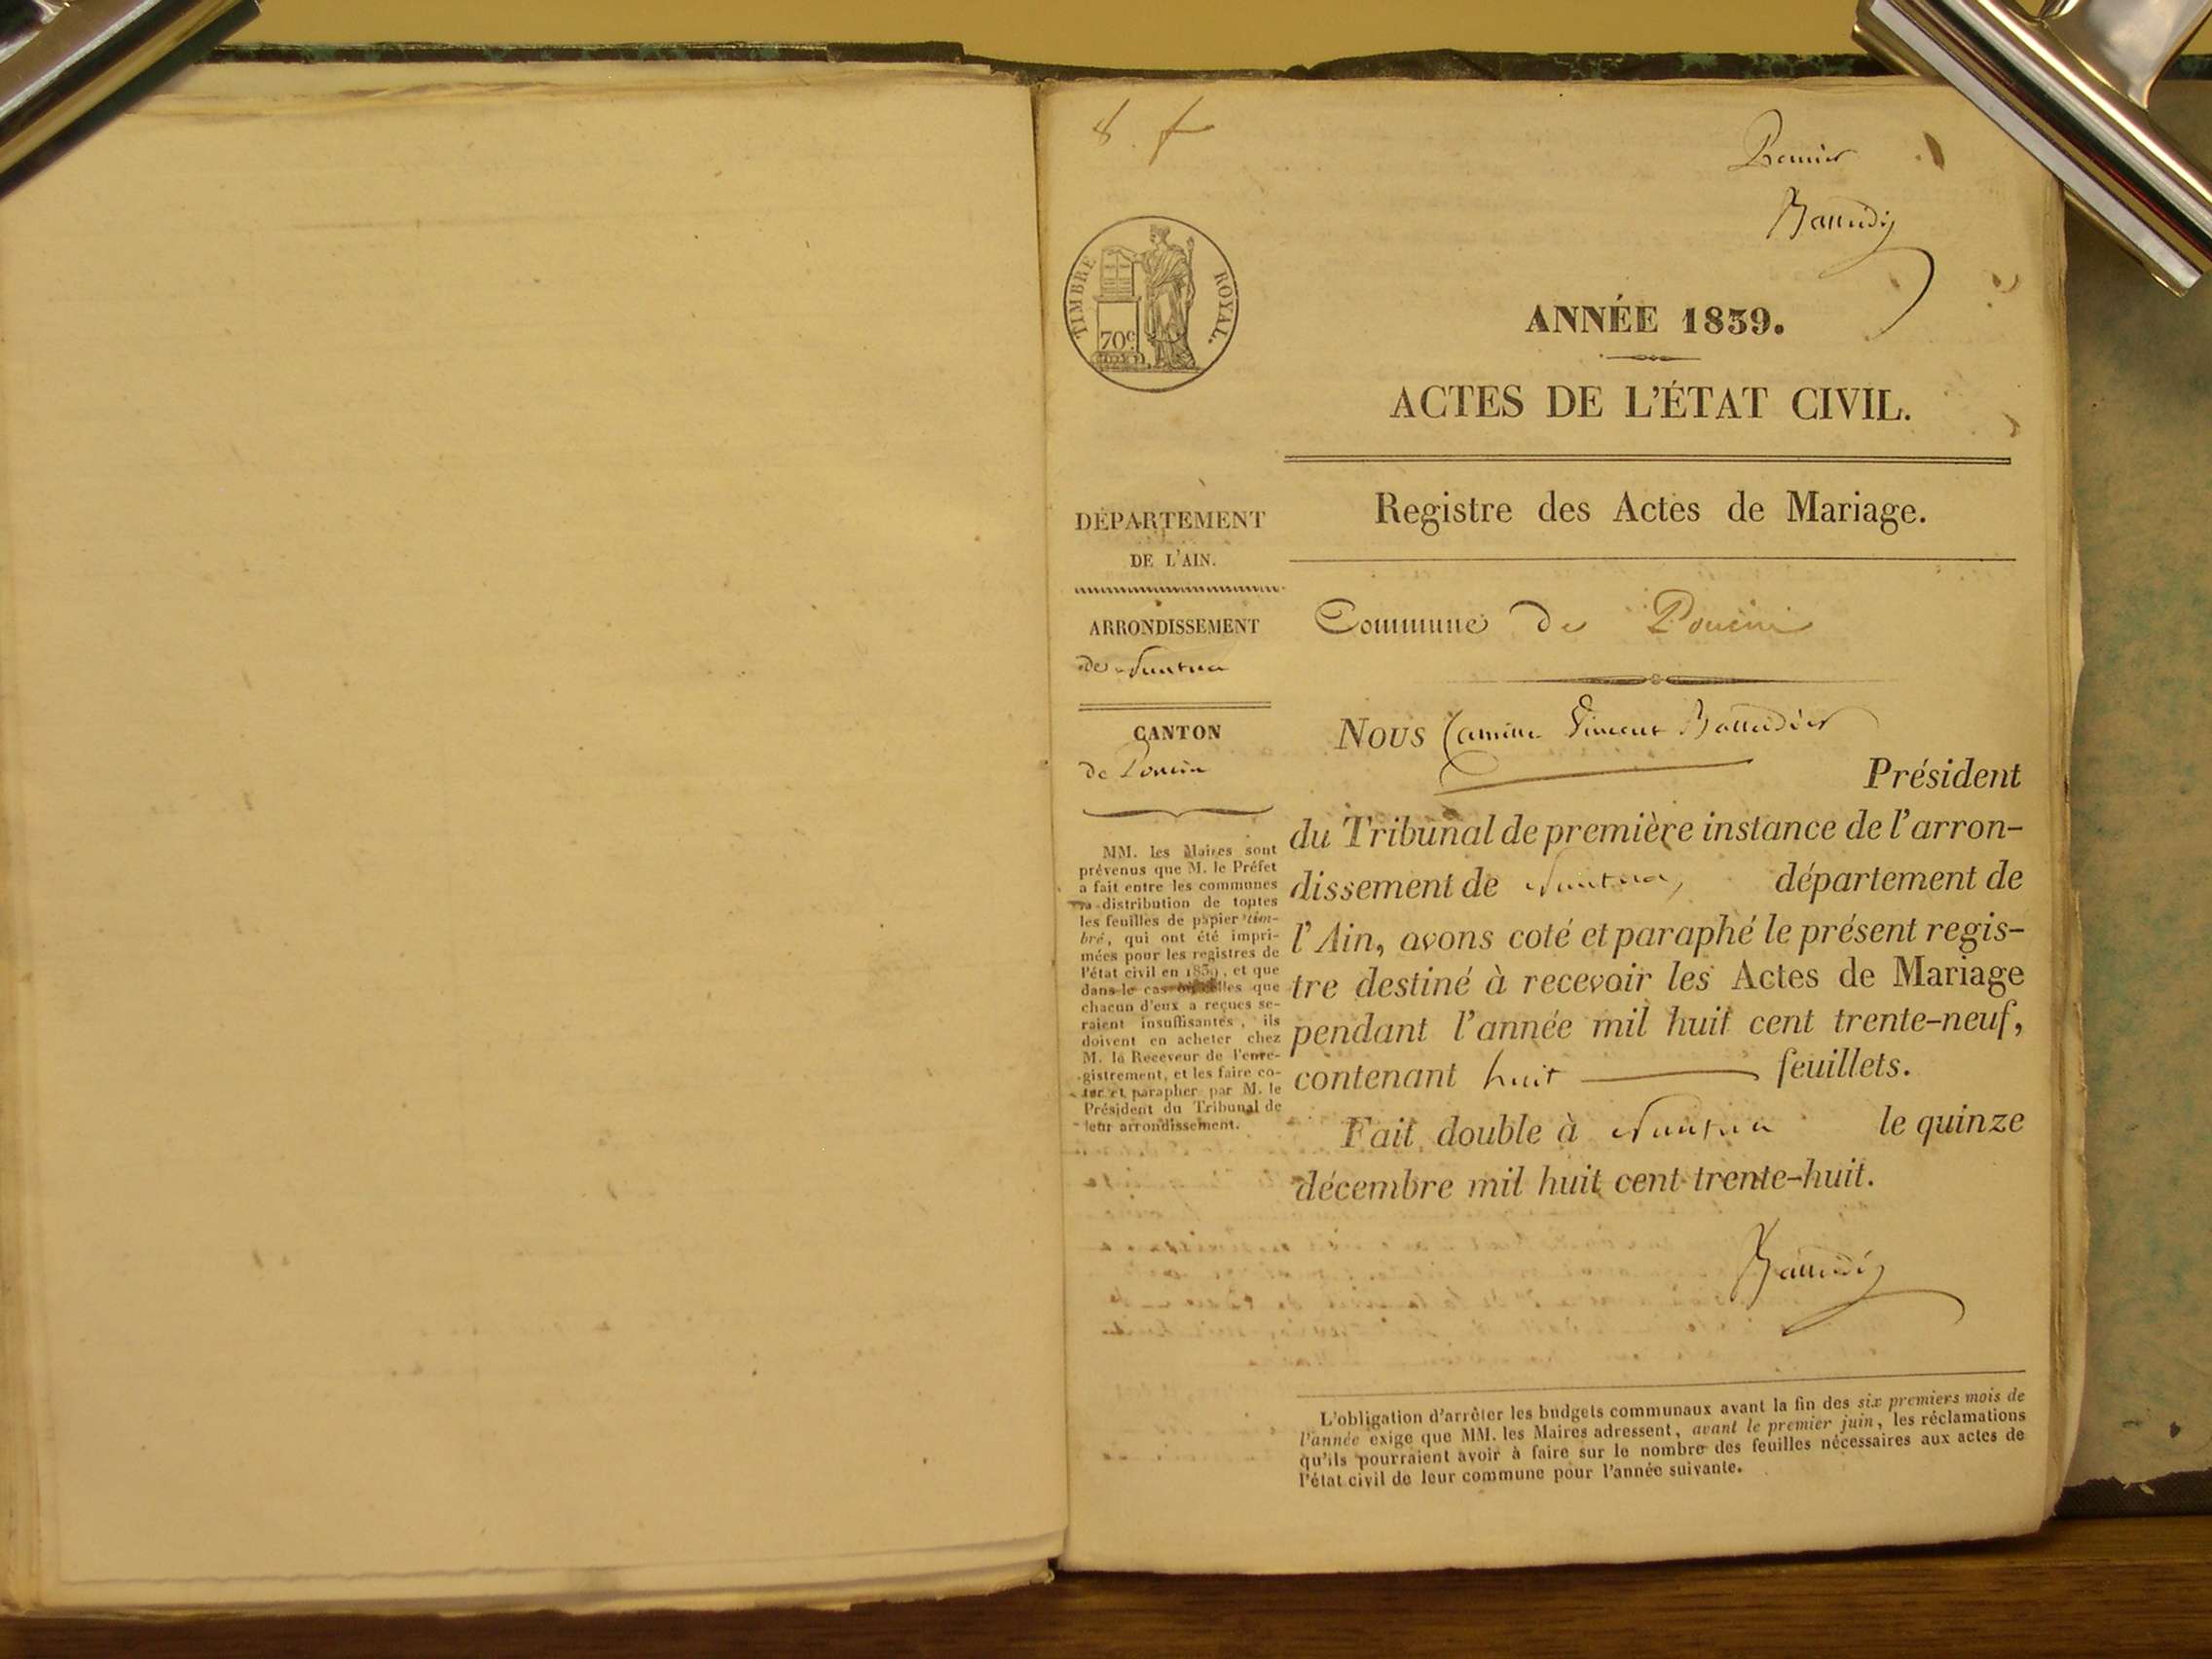 8. f
Premier
TIMBRE ROYAL.
70c
ANNÉE 1839.
ACTES DE L'ÉTAT CIVIL.
Registre des Actes de Mariage.
DÉPARTEMENT
DE L'AIN.
ARRONDISSEMENT
de Nantua
CANTON
de Poncin
MM. les Maires sont
prévenus que M. le Préfet
a fait entre les communes
la distribution de toutes
les feuilles de papier tim-
bré, qui ont été impri-
mées pour les registres de
l'état civil en 1839, et que
dans le cas où celles que
chacun d'eux a reçues se-
raient insuffisantes, ils
doivent en acheter chez
M. le Receveur de l'enre-
gistrement, et les faire co-
ter et parapher par M. le
Président du Tribunal de
leur arrondissement.
Commune de Poncin
Nous Camille Vincent
Président
du Tribunal de première instance de l'arron-
dissement de Nantua, département de
l'Ain, avons coté et paraphé le présent regis-
tre destiné à recevoir les Actes de Mariage
pendant l'année mil huit cent trente-neuf,
contenant huit feuillets.
Fait double à Nantua le quinze
décembre mil huit cent trente-huit.
L'obligation d'arrêter les budgets communaux avant la fin des six premiers mois de
l'année exige que MM. les Maires adressent, avant le premier juin, les réclamations
qu'ils pourraient avoir à faire sur le nombre des feuilles nécessaires aux actes de
l'état civil de leur commune pour l'année suivante.